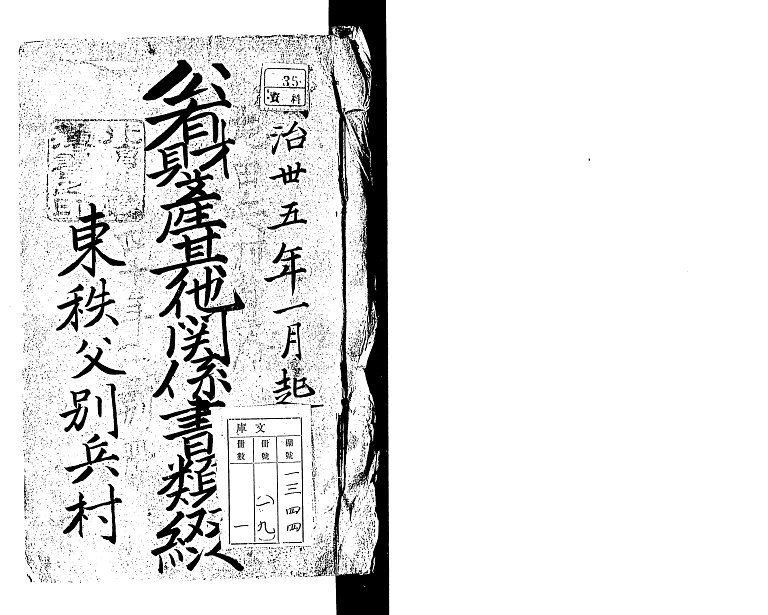 35
資料
治丗五年一月起
公有財産其他関係書類綴
東秩父別兵村
文庫
棚號 一三四四
冊號 (一九)
冊數 一